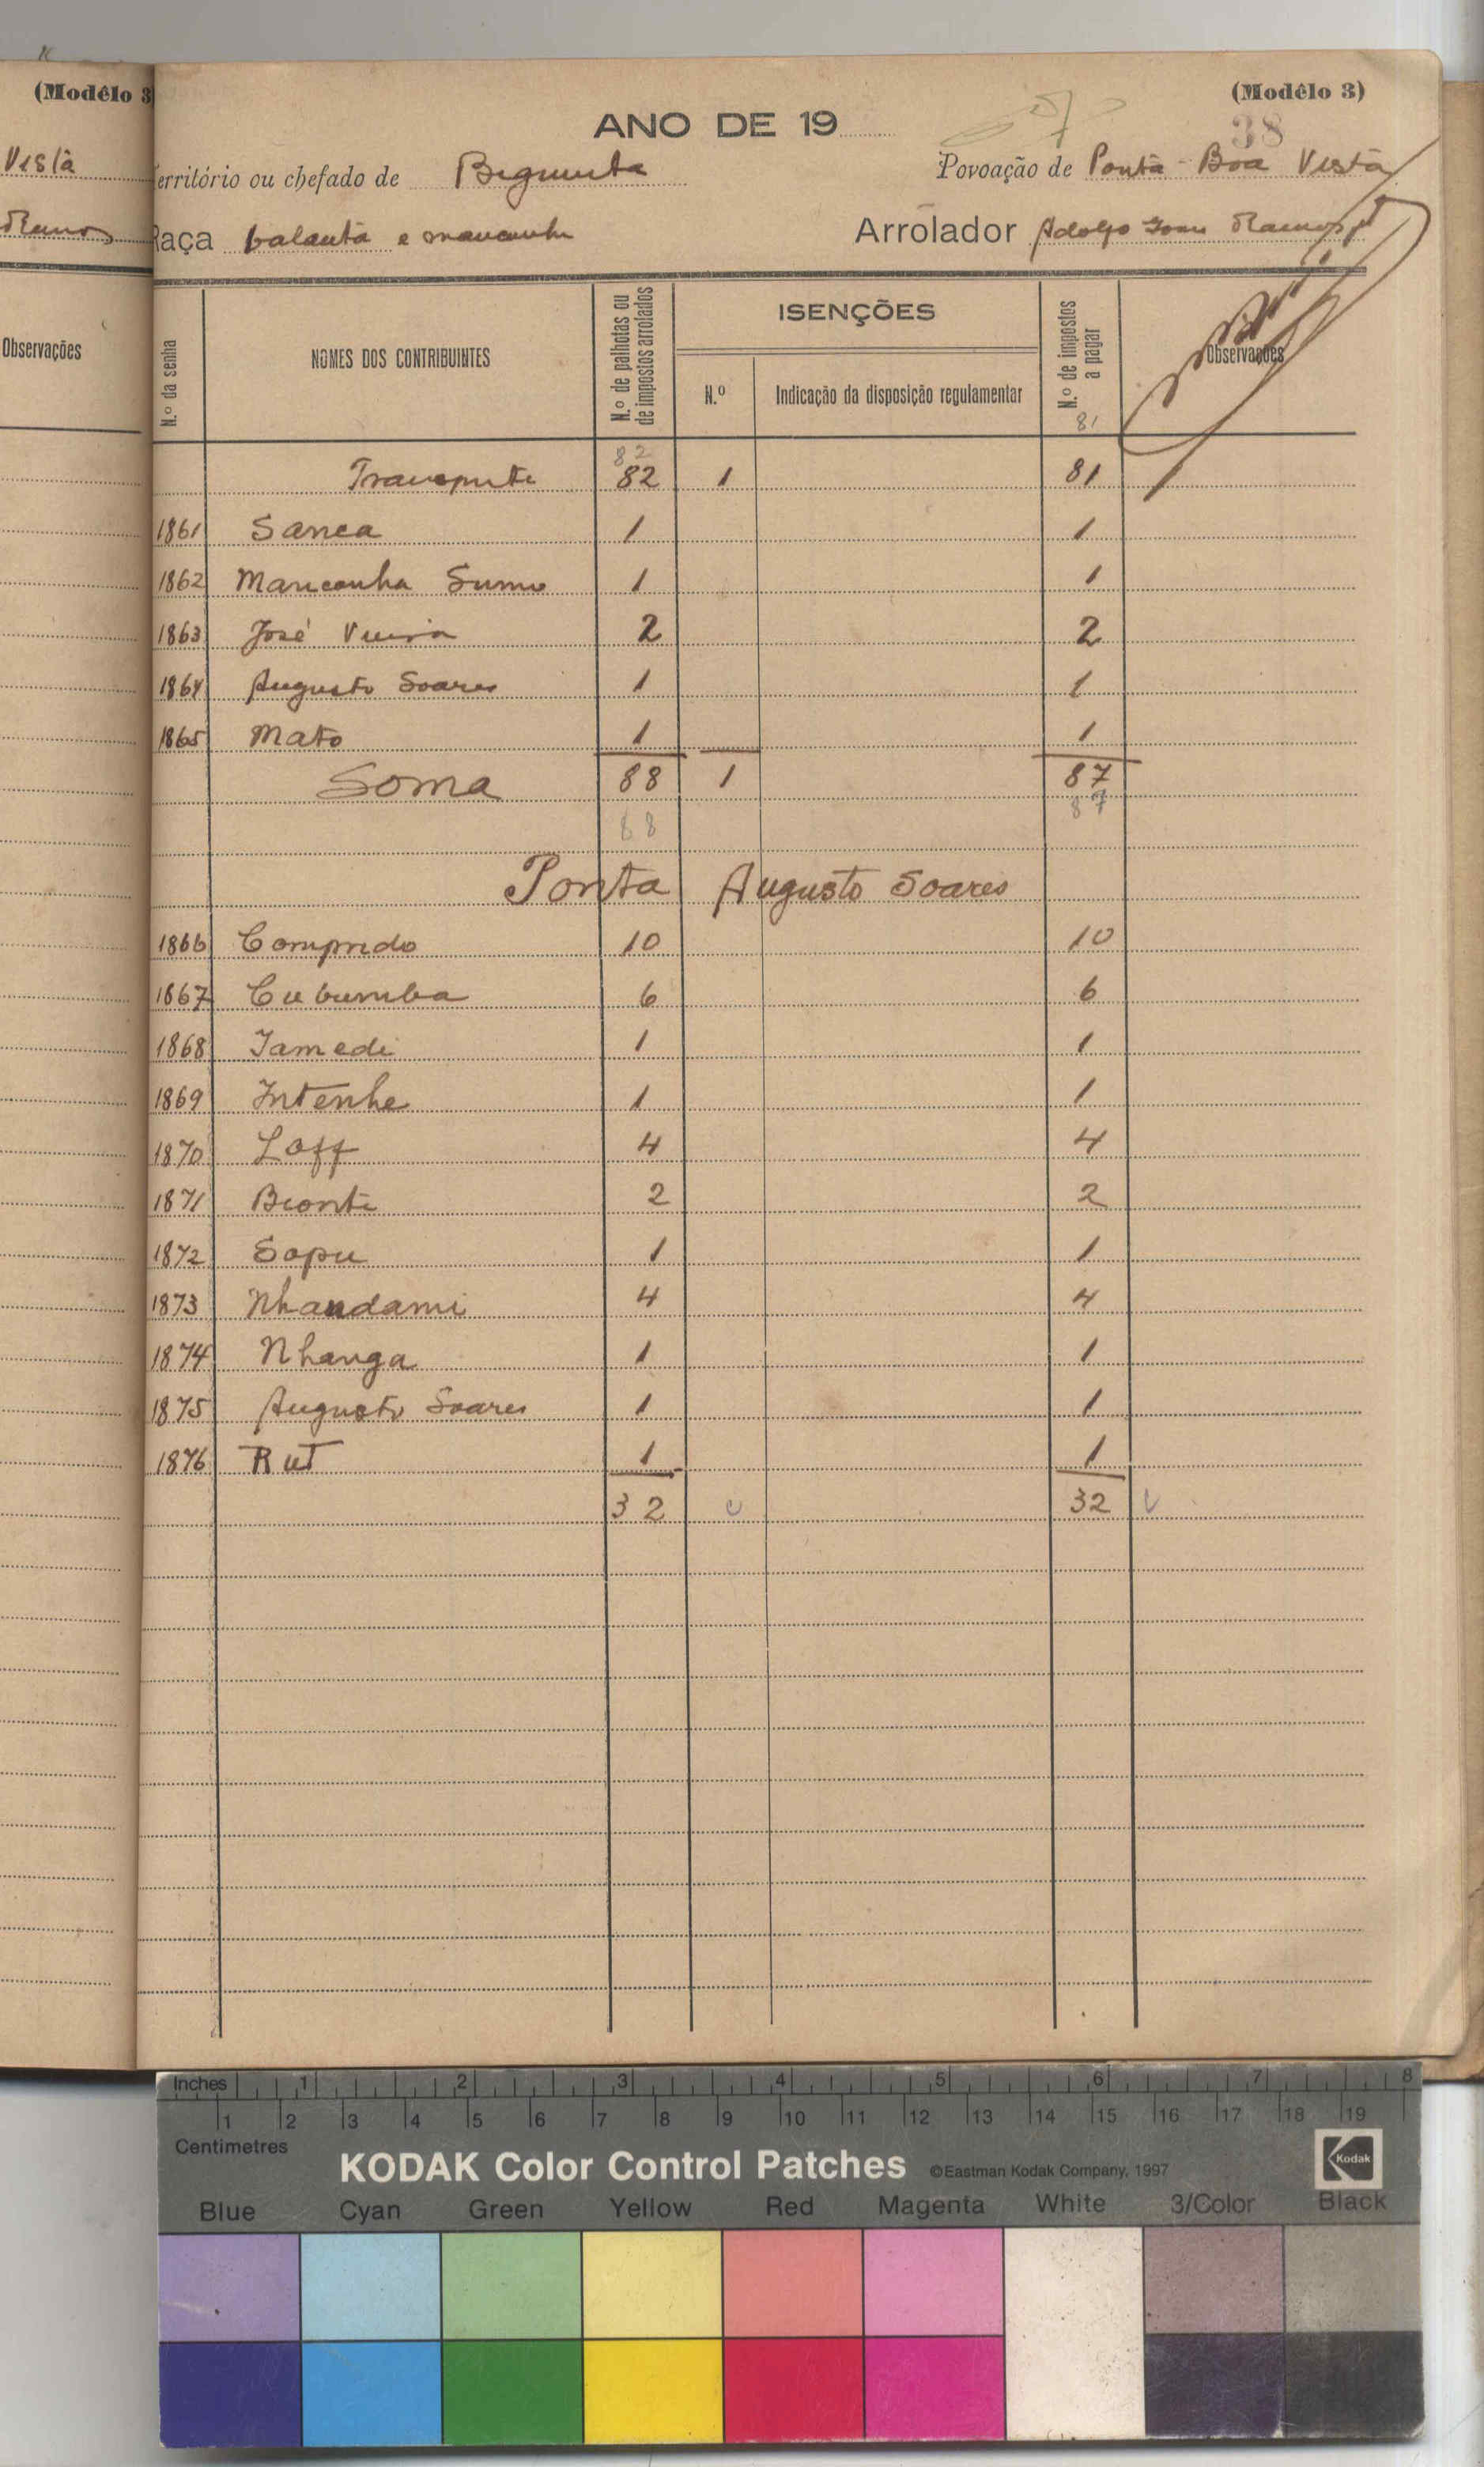 (Modêlo 3
Vista
Ramos
Observações
(Modêlo 3)
38
ANO DE 19
erritório ou chefado de
Povoação de Ponta - Boa Vista
Raça balanta e mancanha
Arrolador Adolfo Ramos
N.º da senha
NOMES DOS CONTRIBUINTES
N.º de palhotas ou de impostos arrolados
ISENÇÕES
N.º
Indicação da disposição regulamentar
N.º de impostos a pagar
Observações
81
82
Transporte 82 1 81
1861 Sanca 1 1
1862 Mancanha Sumo 1 1
1863 José Vieira 2 2
1864 Augusto Soares 1 1
1865 Mato 1 1
Soma 88 1 87
88 87
Ponta Augusto Soares
1866 Comprido 10 10
1867 Cubumba 6 6
1868 Iamedi 1 1
1869 Intenhe 1 1
1870 Loff 4 4
1871 Bionti 2 2
1872 Sopu 1 1
1873 Nhandami 4 4
1874 Nhanga 1 1
1875 Augusto Soares 1 1
1876 Rut 1 1
32 32
Inches 1 2 3 4 5 6 7 8
1 2 3 4 5 6 7 8 9 10 11 12 13 14 15 16 17 18 19
Centimetres
KODAK Color Control Patches ©Eastman Kodak Company, 1997 Kodak
Blue Cyan Green Yellow Red Magenta White 3/Color Black